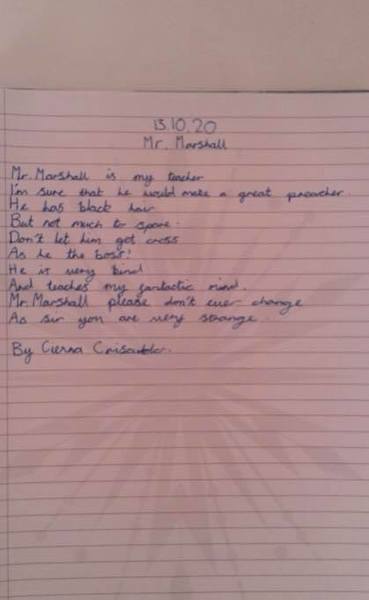 13.10.20
Mr. Marshall
Mr. Marshall is my teacher
I'm sure that he would make a great preacher.
He has black hair
But not much to spare.
Don't let him get cross
As he the boss!
He is very kind
And teaches my fantastic mind.
Mr. Marshall please don't ever change
As sir you are very strange.
By Cierra